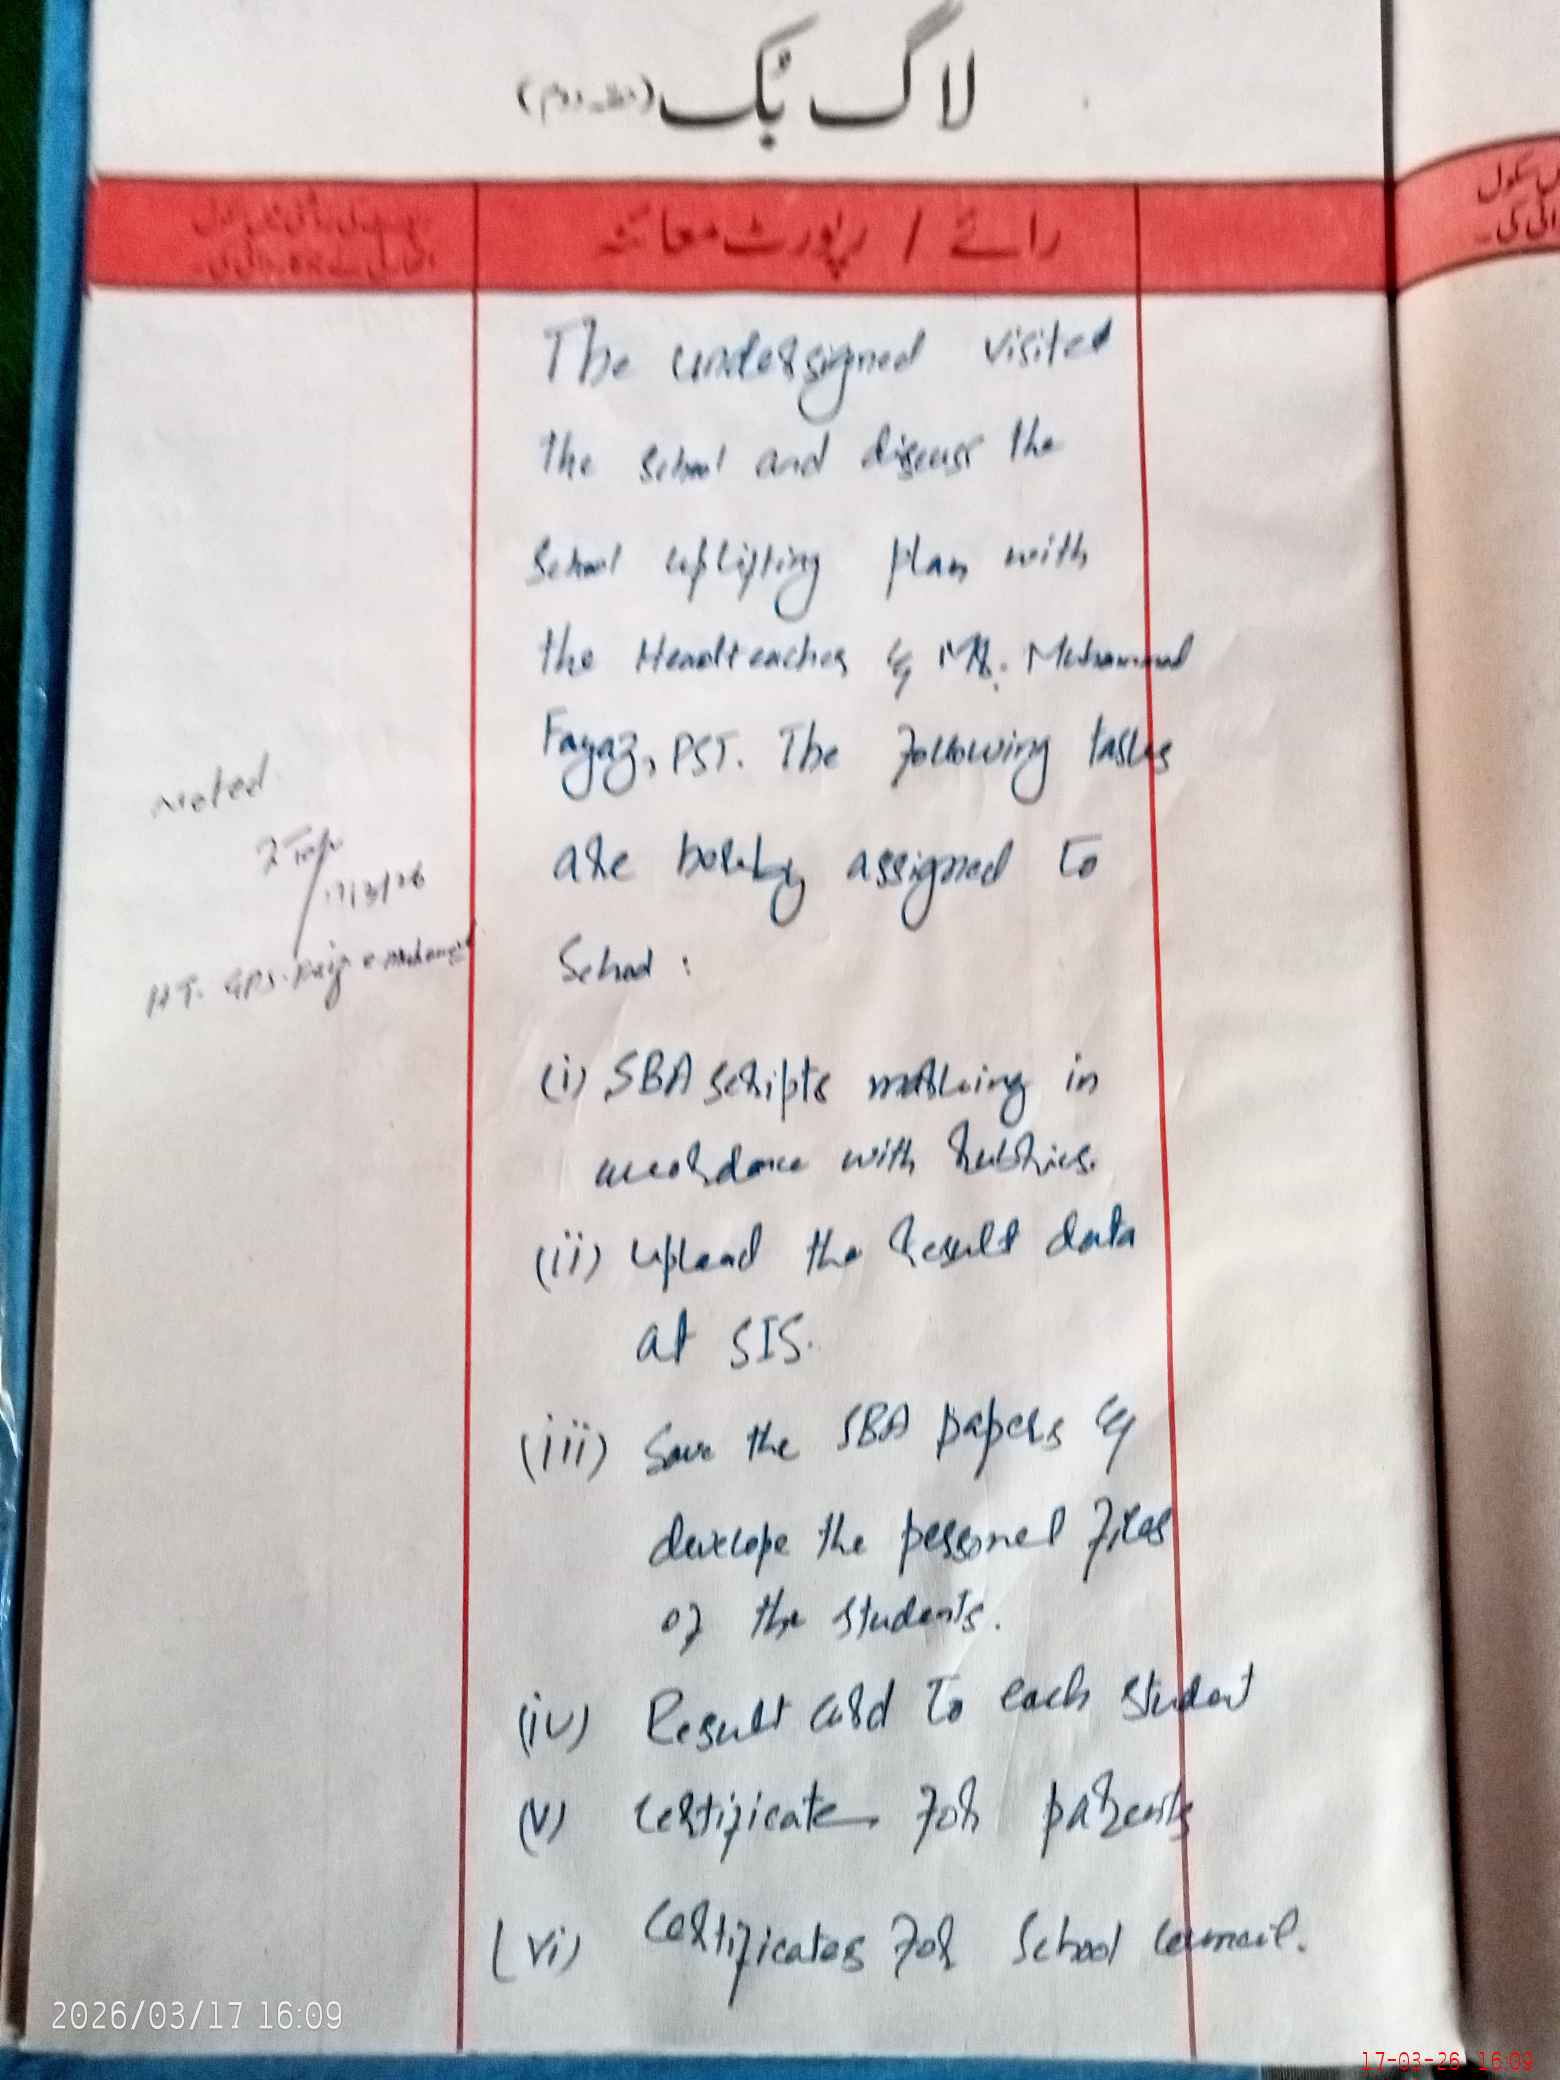 لاگ بک (حصہ دوم)
رائے / رپورٹ معائنہ
سکول
The undersigned visited
the School and discuss the
School uplifting plan with
the Headteacher & Mr. Muhammad
Fayaz, PST. The following tasks
are hereby assigned to
School :
(i) SBA scripts marking in
accordance with rubrics.
(ii) Upload the result data
at SIS.
(iii) Save the SBA papers &
develope the personel files
of the students.
(iv) Result card to each student
(v) Certificate for parents
(vi) Certificates for School Council.
Noted
17/3/26
HT. GPS.
2026/03/17 16:09
17-03-26 16:09